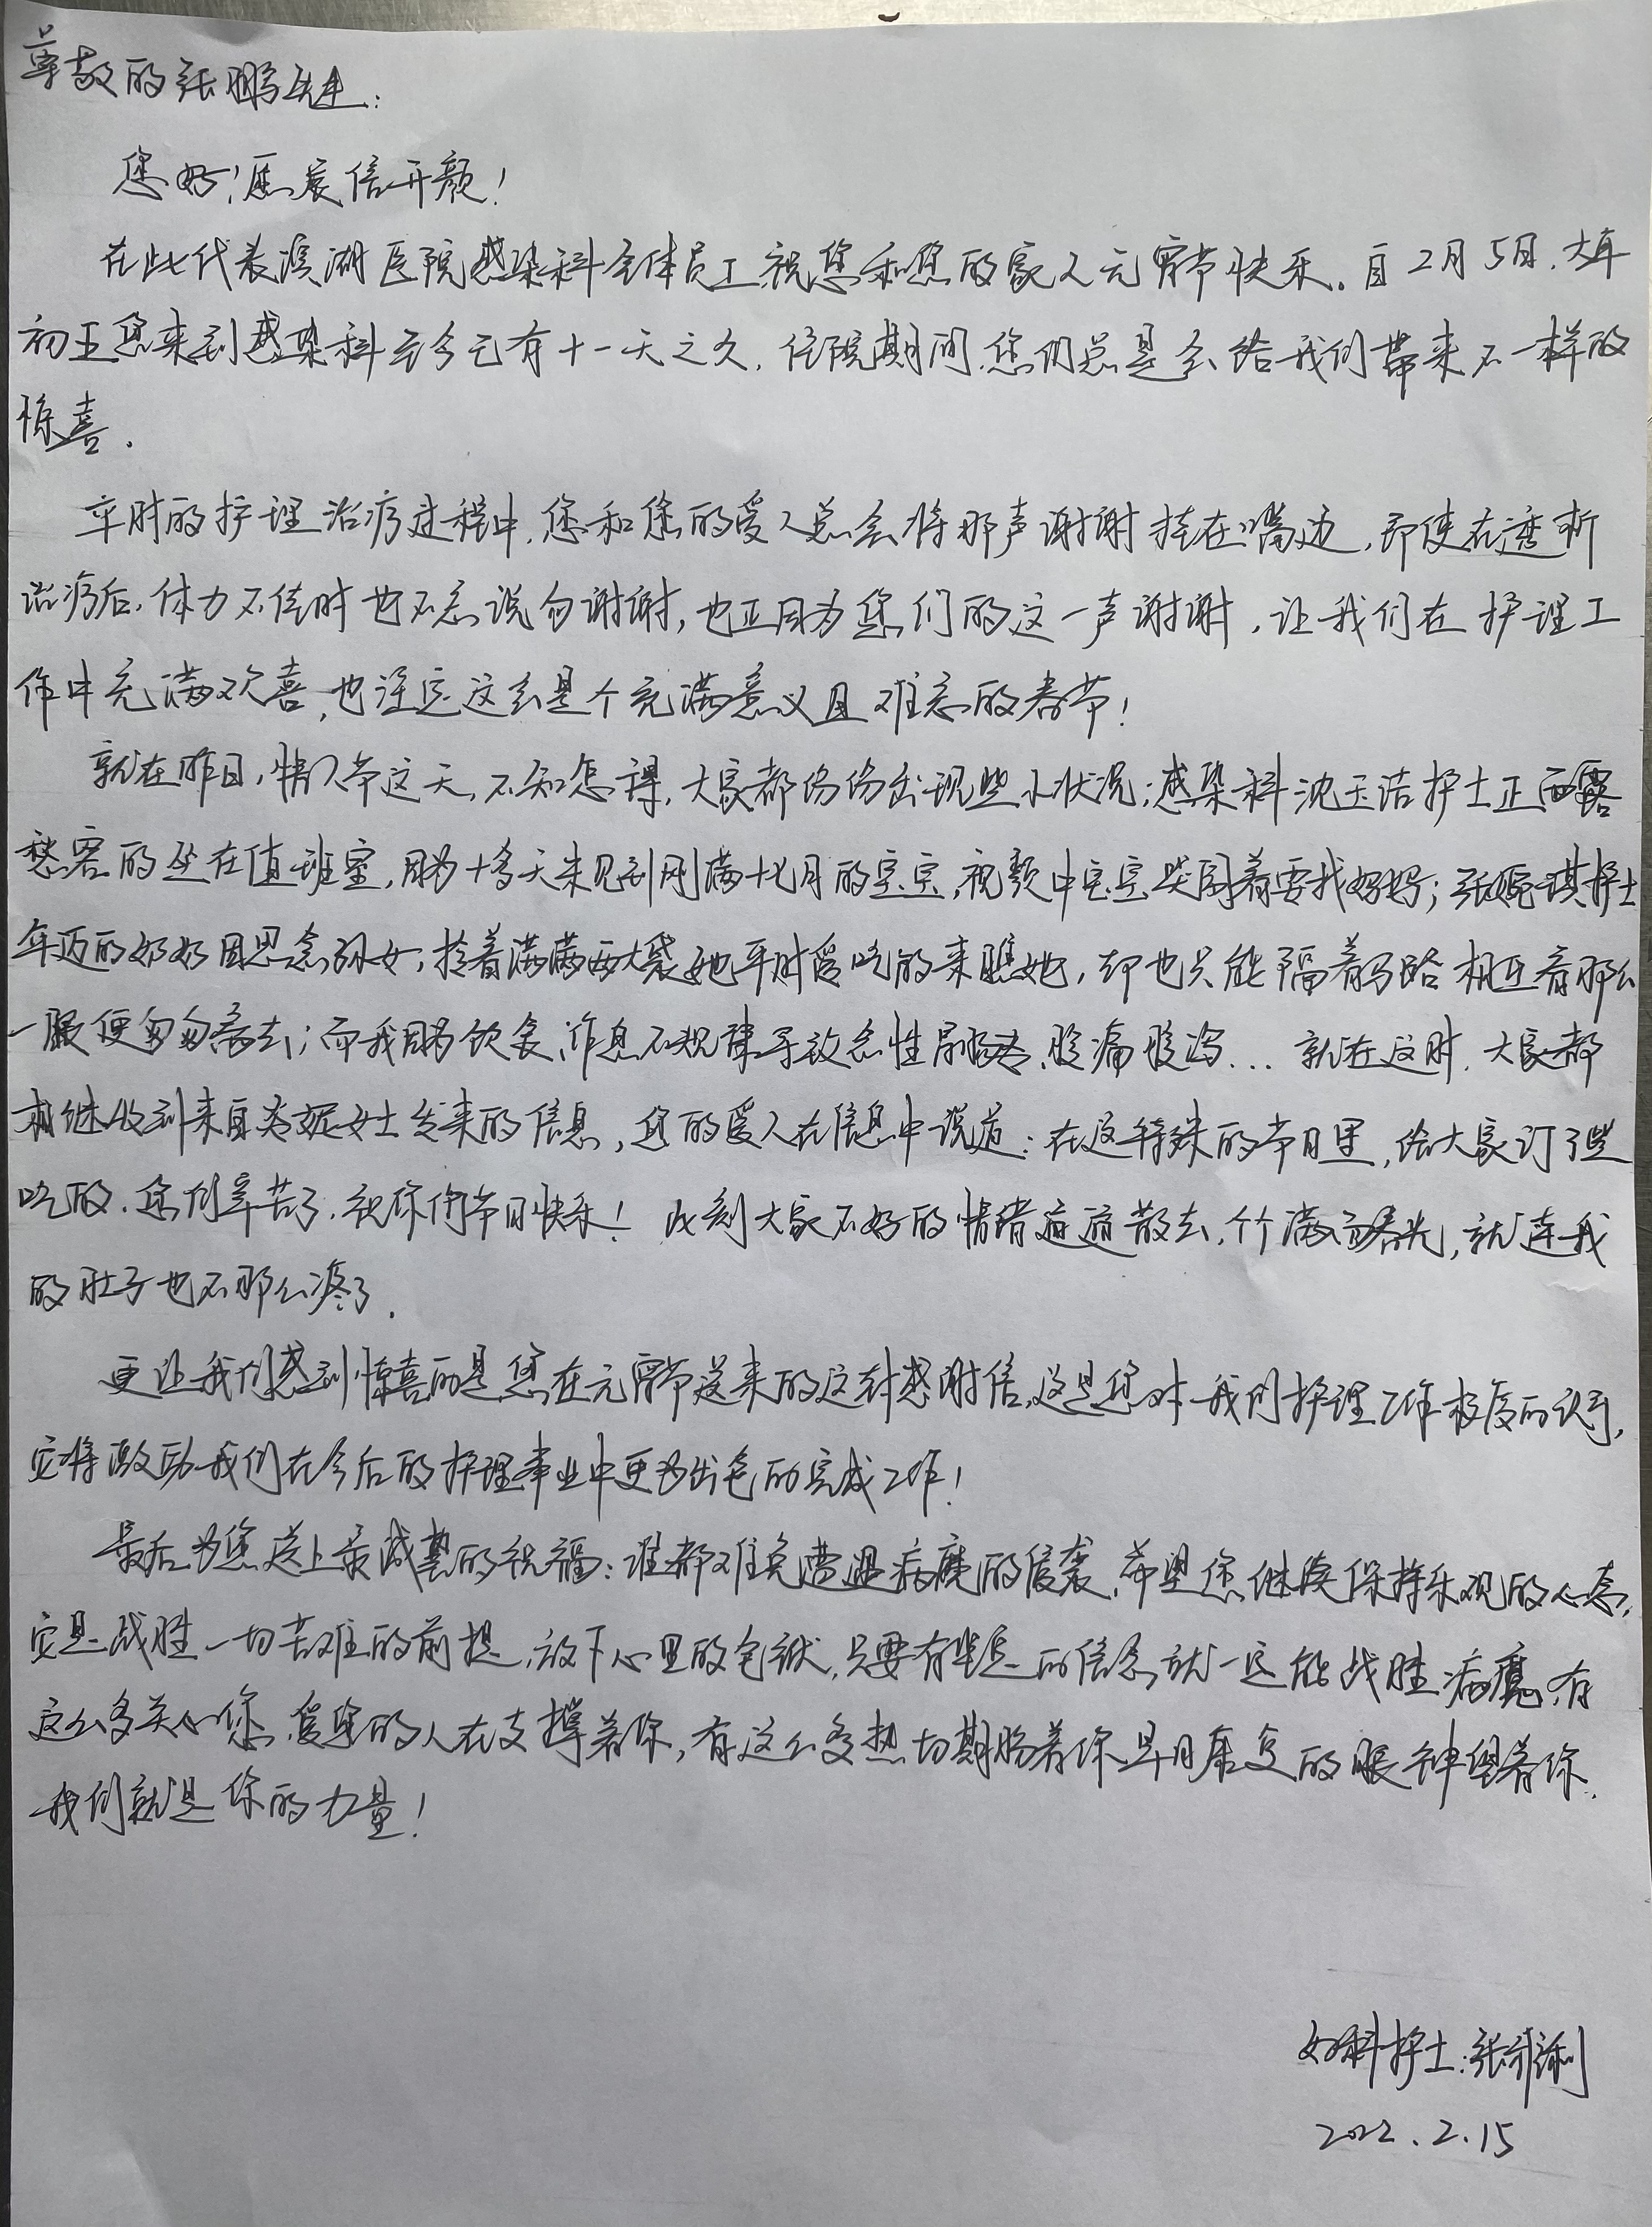 尊敬的张鹏先生:
您好!愿展信开颜!
在此代表滨湖医院感染科全体员工,祝您和您的家人元宵节快乐。自2月5日,大年
初五您来到感染科至今已有十一天之久,住院期间,您们总是会给我们带来不一样的
惊喜.
平时的护理治疗过程中,您和您的爱人总会将那声谢谢挂在嘴边,即使在透析
治疗后,体力不佳时也不忘说句谢谢,也正因为您们的这一声谢谢,让我们在护理工
作中充满欢喜,也注定这会是个充满意义且难忘的春节!
就在昨日,情人节这天,不知怎得,大家都纷纷出现些小状况;感染科沈玉洁护士正面露
愁容的坐在值班室,因为十多天未见到刚满十七月的宝宝,视频中宝宝哭闹着要找妈妈;张婉琪护士
年迈的奶奶因思念孙女,拎着满满两大袋她平时爱吃的来瞧她,却也只能隔着马路相互看那么
一眼便匆匆离去;而我因为饮食、作息不规律导致急性肠胃炎,腹痛腹泻... 就在这时,大家都
相继收到来自女士发来的信息,您的爱人在信息中说道:在这特殊的节日里,给大家订了些
吃的,您们辛苦了,祝你们节日快乐! 此刻大家不好的情绪通通散去,个个满面春光,就连我
的肚子也不那么疼了.
更让我们感到惊喜的是您在元宵节送来的这封感谢信,这是您对我们护理工作极度的认可,
它将激励我们在今后的护理事业中更为出色的完成工作!
最后为您送上最诚挚的祝福:谁都难免遭遇病魔的侵袭,希望您继续保持乐观的心态,
它是战胜一切苦难的前提,放下心里的包袱,只要有坚定的信念就一定能战胜病魔,有
这么多关心您、爱您的人在支撑着你,有这么多热切期盼着你早日康复的眼神望着你.
我们就是你的力量!
妇科护士:张
2022.2.15